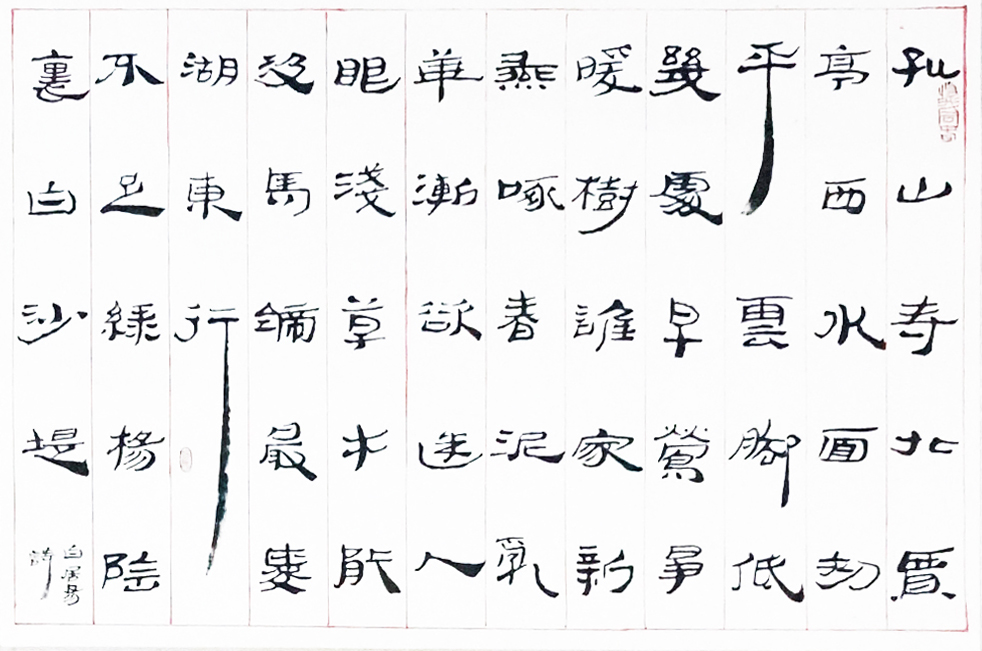 孤山寺北賈
亭西水面初
平雲腳低
幾處早鶯爭
暖樹誰家新
燕啄春泥亂
華漸欲迷人
眼淺草才能
沒馬蹄最愛
湖東行
不足綠楊陰
裏白沙堤
白居易
詩